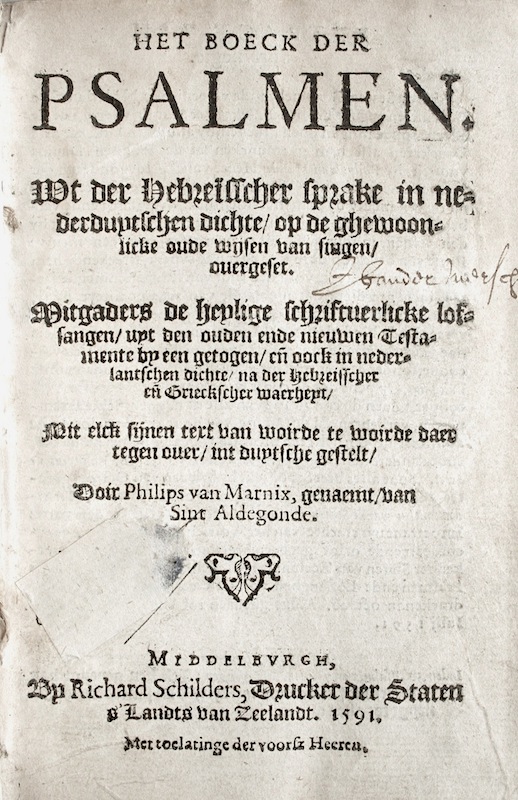 HET BOECK DER
PSALMEN.
Wt der Hebreisscher sprake in ne=
derduytschen dichte/ op de ghewoon=
licke oude wijsen van singen/
ouergeset.
Mitgaders de heylige schriftuerlicke lof=
sangen/ uyt den ouden ende nieuwen Testa=
mente by een getogen/ eñ oock in neder=
lantschen dichte/ na der Hebreisscher
eñ Grieckscher waerheyt/
Mit elck sijnen text van woirde te woirde daer
tegen ouer/ int duytsche gestelt/
Doir Philips van Marnix, genaemt/van
Sint Aldegonde.
MIDDELBVRGH,
By Richard Schilders, Drucker der Staten
s'Landts van Zeelandt. 1591.
Met toelatinge der voorsz Heeren.